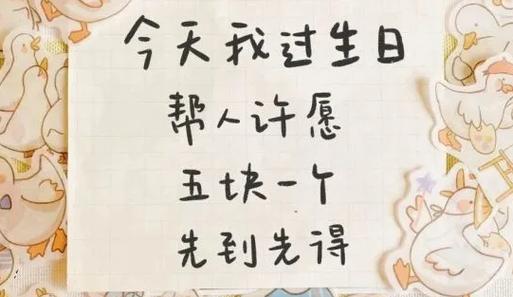 今天我过生日
帮人许愿
五块一个
先到先得